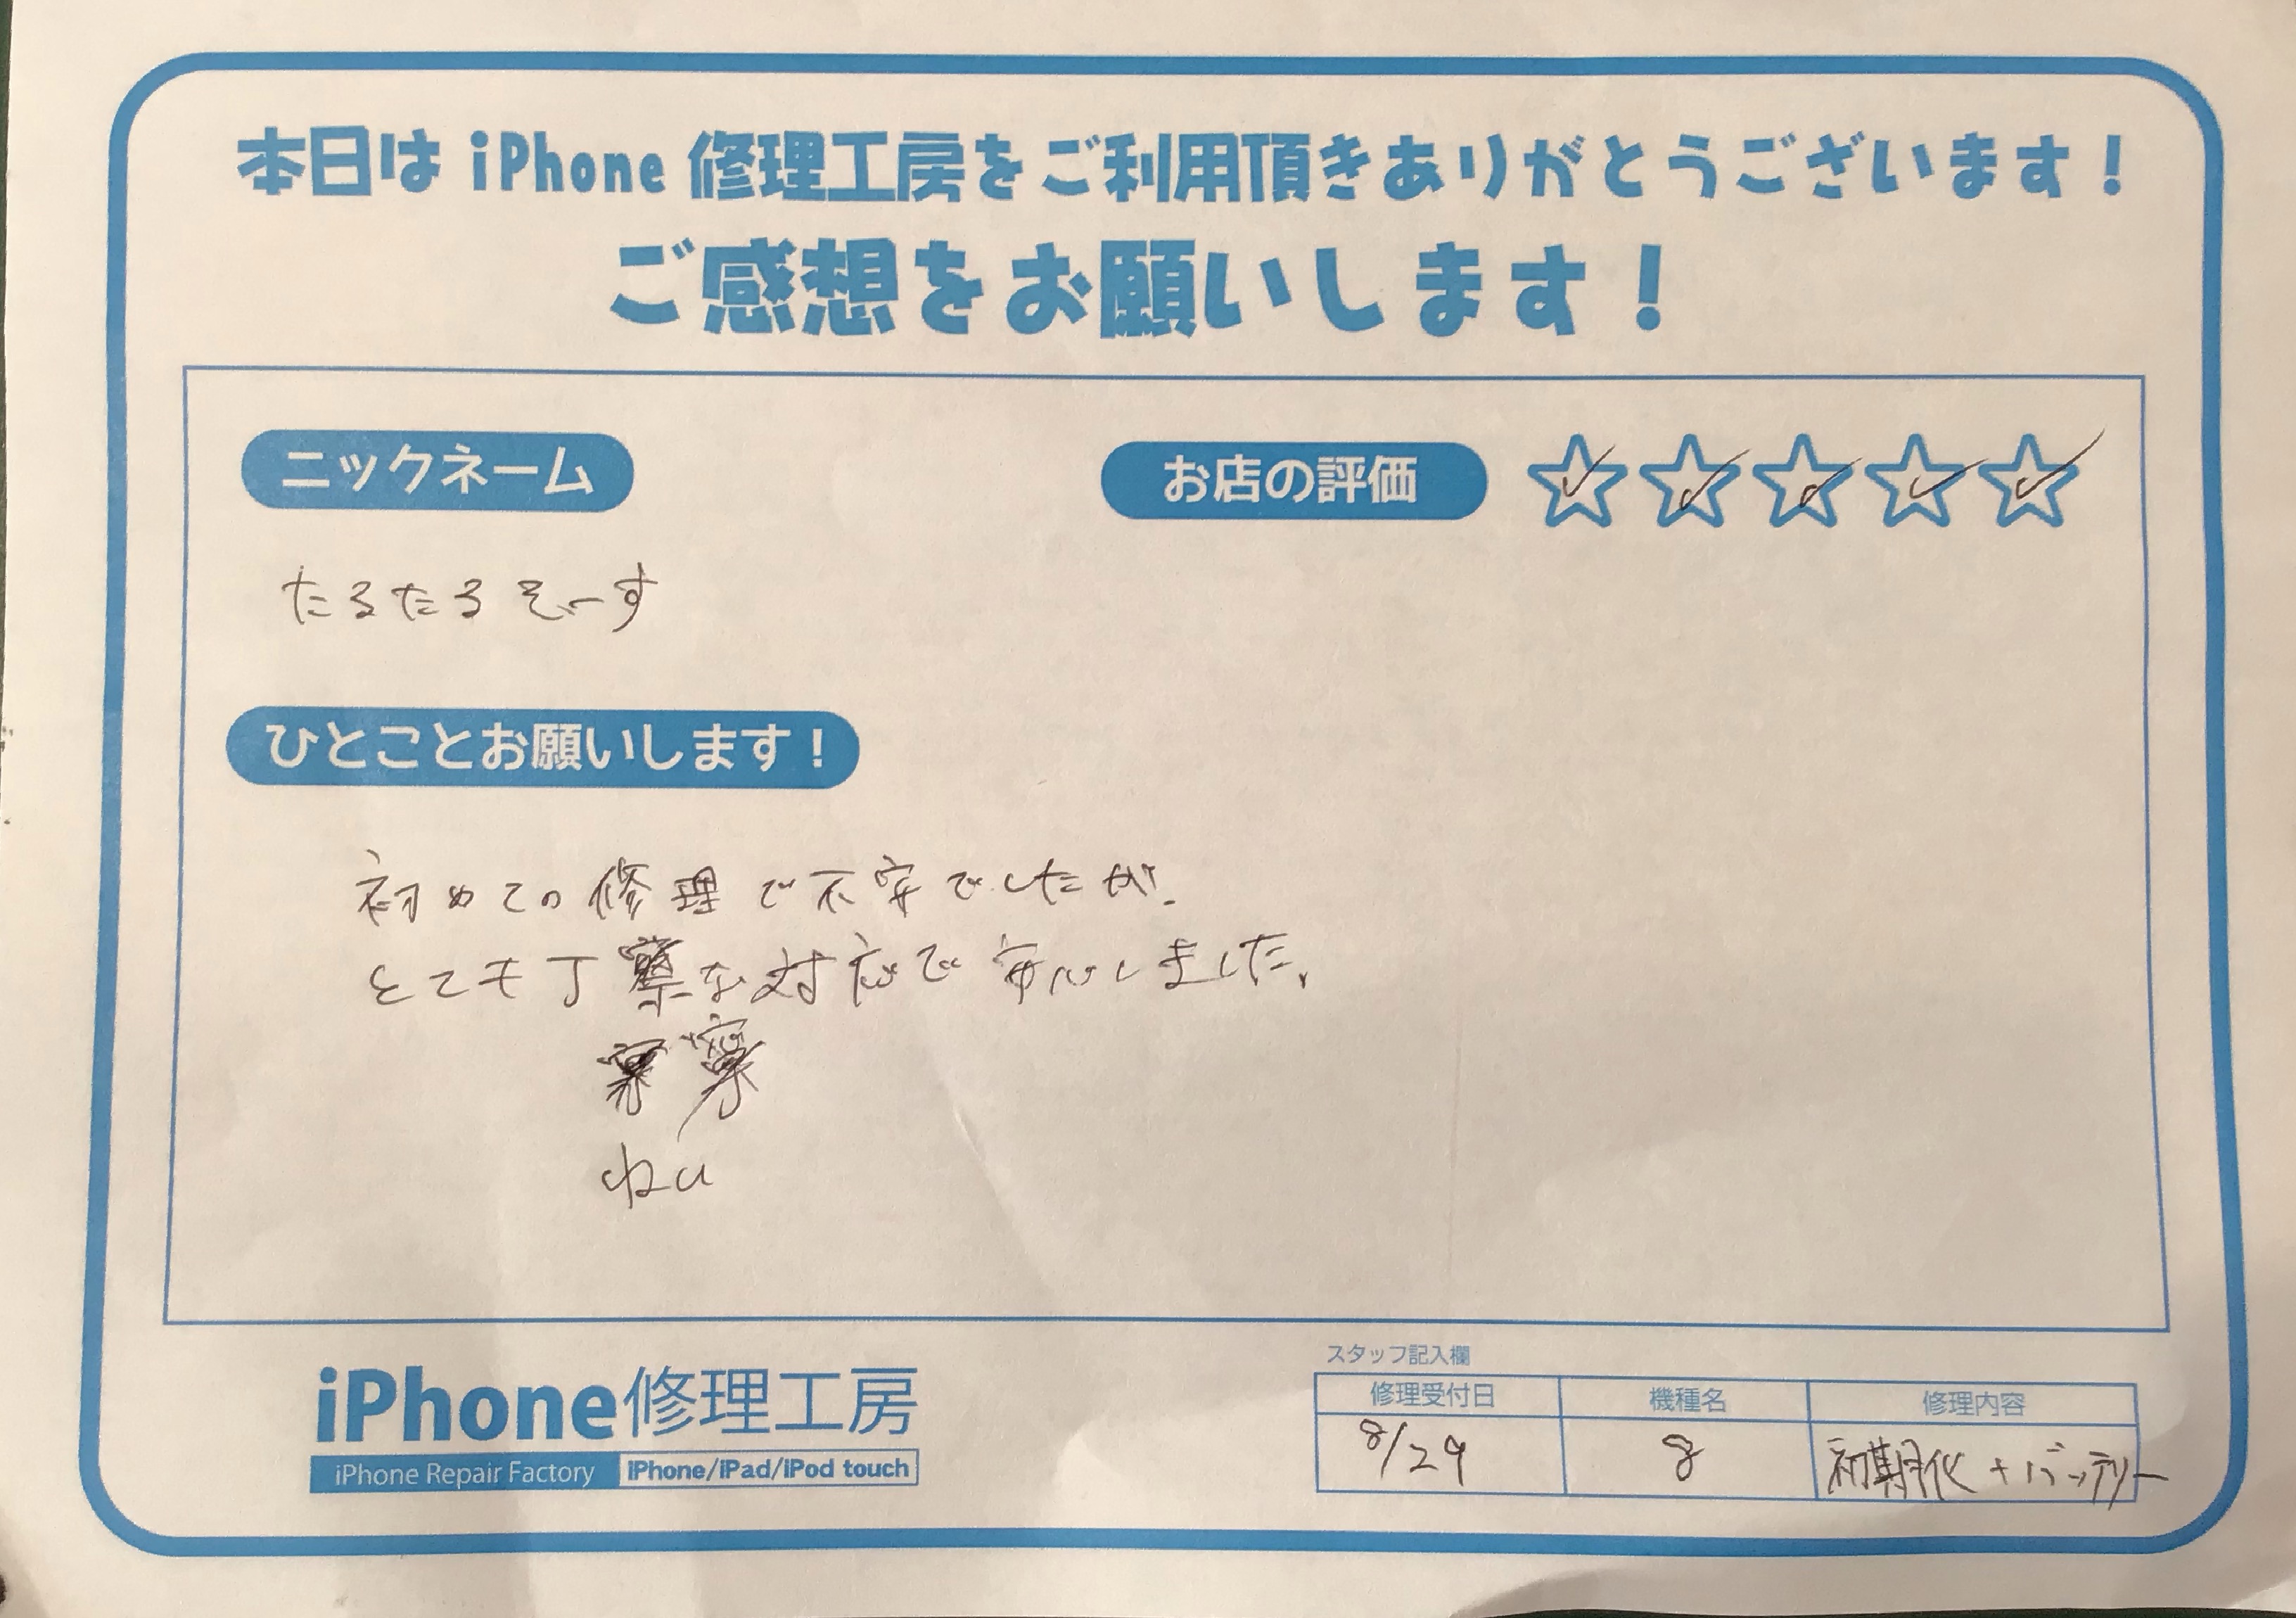 本日は iPhone 修理工房をご利用頂きありがとうございます！
ご感想をお願いします！
ニックネーム
お店の評価
たるたるそーす
ひとことお願いします！
初めての修理で不安でしたが、
とても丁な対応で安心しました。
ねい
iPhone修理工房
iPhone Repair Factory iPhone/iPad/iPod touch
スタッフ記入欄
修理受付日 機種名 修理内容
8/29 8 初期化+バッテリー